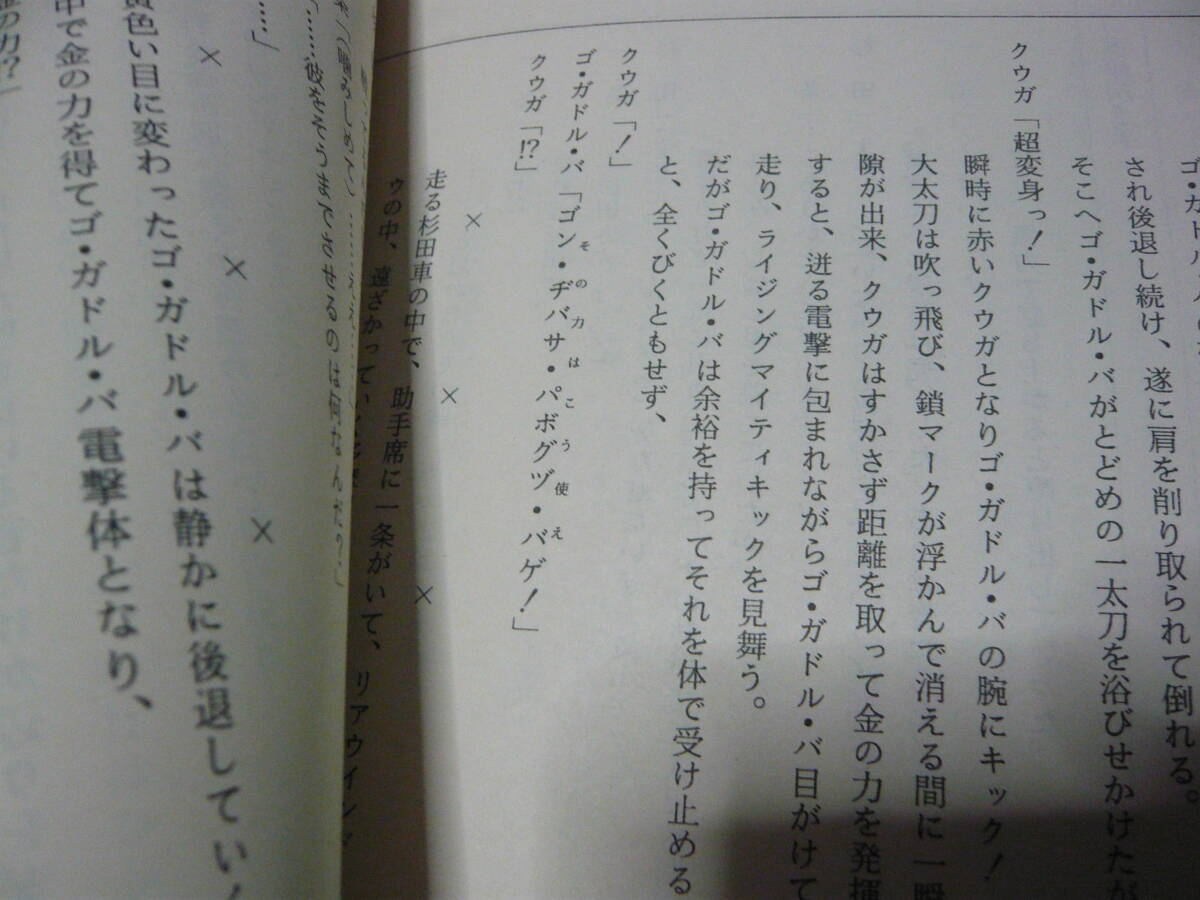 され後退し続け、遂に肩を削り取られて倒れる。
そこへゴ・ガドル・バがとどめの一太刀を浴びせかけたが
クウガ「超変身っ!」
瞬時に赤いクウガとなりゴ・ガドル・バの腕にキック!
大太刀は吹っ飛び、鎖マークが浮かんで消える間に一瞬
隙が出来、クウガはすかさず距離を取って金の力を発揮
すると、迸る電撃に包まれながらゴ・ガドル・バ目がけて
走り、ライジングマイティキックを見舞う。
だがゴ・ガドル・バは余裕を持ってそれを体で受け止める
と、全くびくともせず、
クウガ「!」
その力はこう使え
ゴ・ガドル・バ「ゴン・ヂバサ・パボグヅ・バゲ!」
クウガ「!?」
× × ×
走る杉田車の中で、助手席に一条がいて、リアウインド
ウの中、遠ざかってい
(噛みしめて)……ええ……
「……彼をそうまでさせるのは何なんだ?」
……」
× × ×
黄色い目に変わったゴ・ガドル・バは静かに後退してい
中で金の力を得てゴ・ガドル・バ電撃体となり、
金の力?」